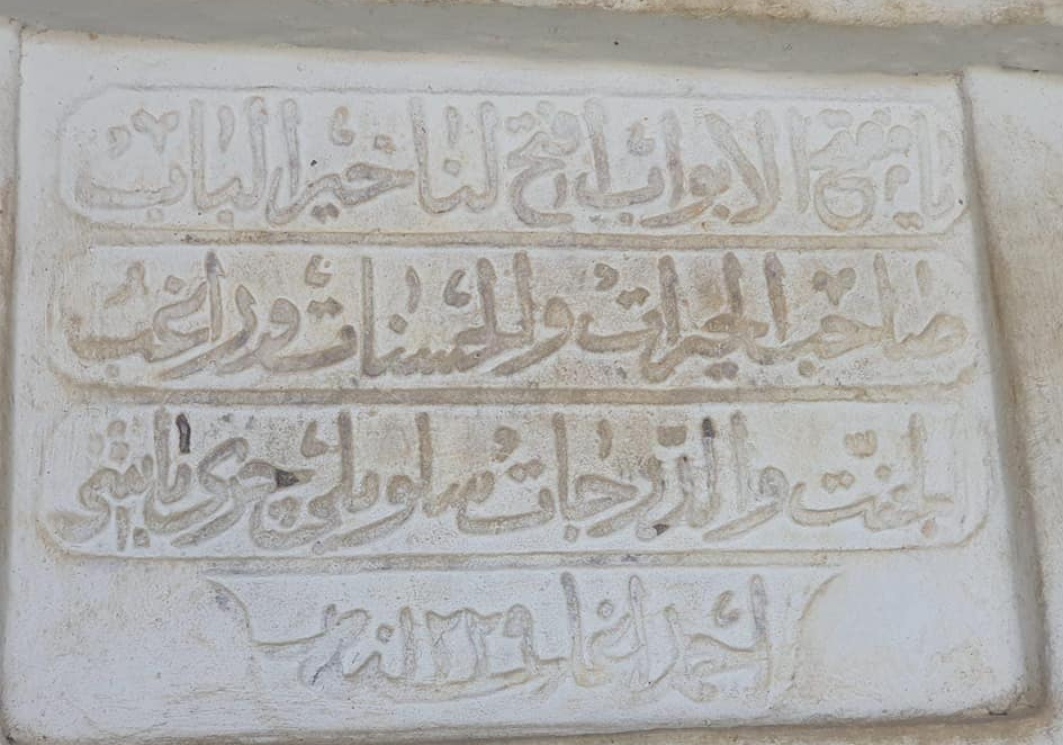 يا مفتح الابواب افتح لنا خير الباب
صاحب الخيرات والحسنات وراغب
بالجنت والدرجات سلورلى چرى باشى
احمد اغا ١٢٢٩